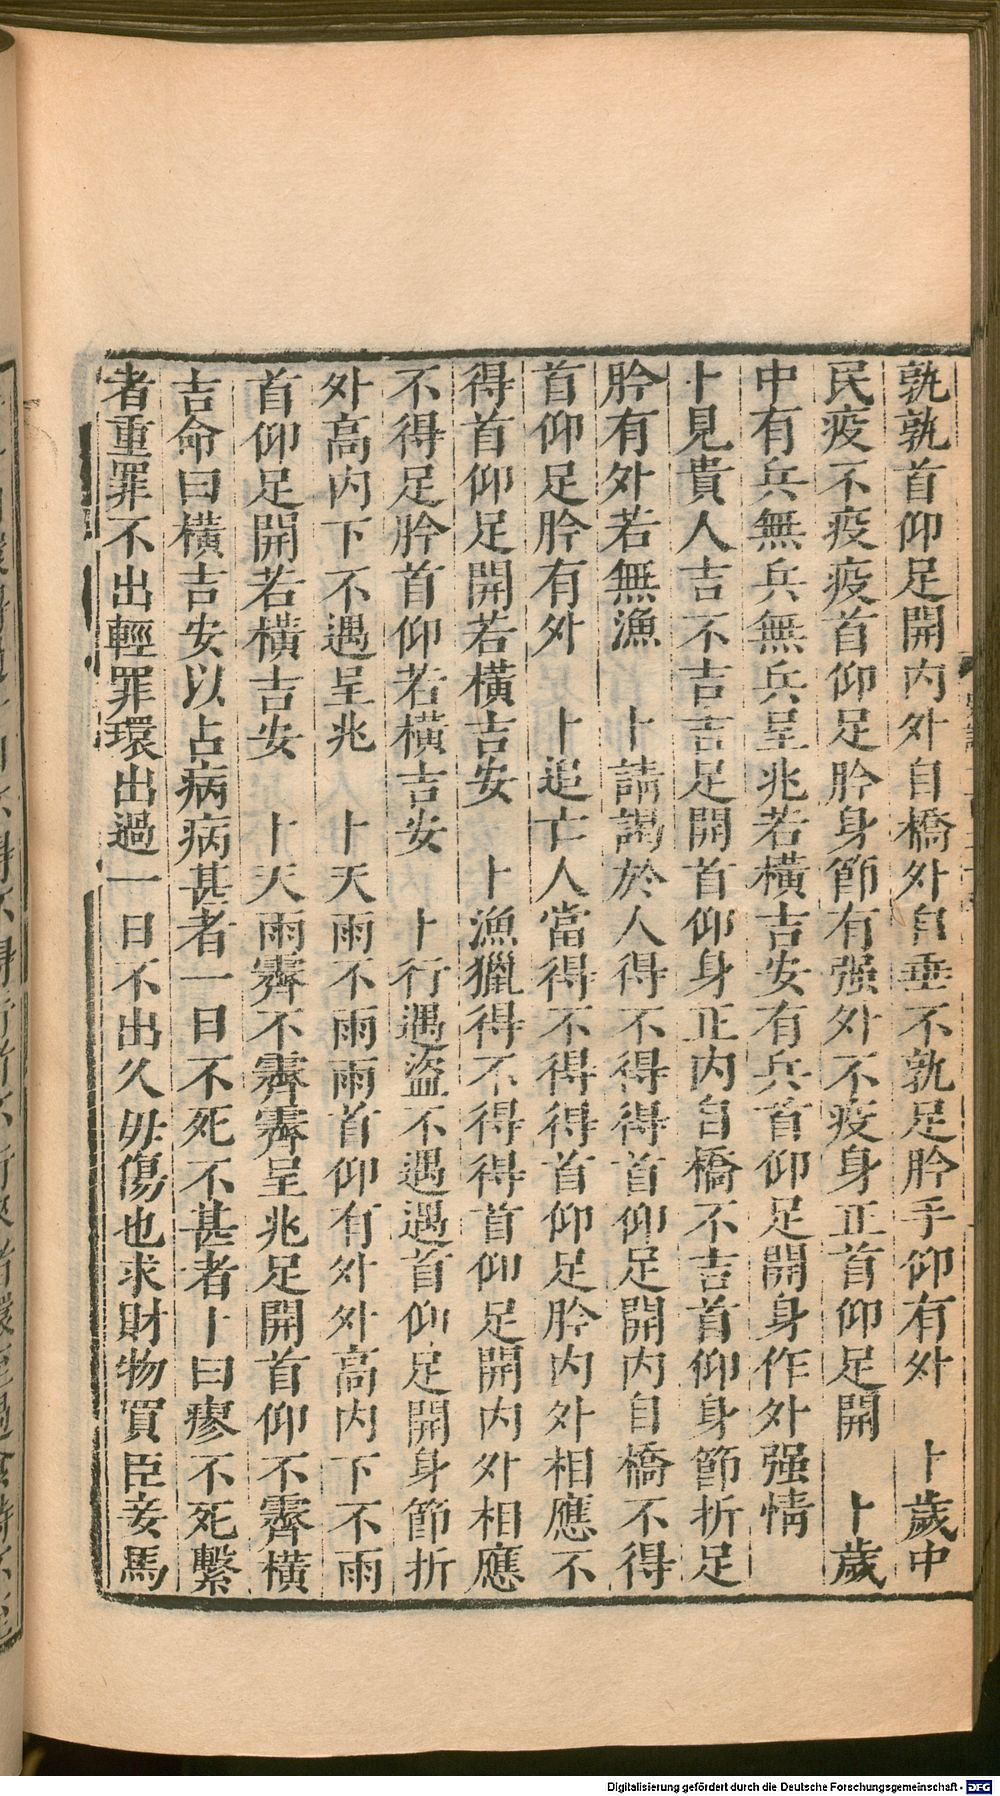 孰孰首仰足開内外自橋外自垂不孰足肣手仰有外　卜歲中
民疫不疫疫首仰足肣身節有强外不疫身正首仰足開　卜歲
中有兵無兵無兵呈兆若橫吉安有兵首仰足開身作外强情
卜見貴人吉不吉吉足開首仰身正内自橋不吉首仰身節折足
肣有外若無漁　卜請謁於人得不得得首仰足開内自橋不得
首仰足肣有外　卜追亡人當得不得得首仰足肣内外相應不
得首仰足開若橫吉安　卜漁獵得不得得首仰足開内外相應
不得足肣首仰若橫吉安　卜行遇盜不遇遇首仰足開身節折
外高内下不遇呈兆　卜天雨不雨雨首仰有外外高内下不雨
首仰足開若橫吉安　卜天雨霽不霽霽呈兆足開首仰不霽橫
吉命曰橫吉安以占病病甚者一日不死不甚者卜曰瘳不死繫
者重罪不出輕罪環出過一日不出久毋傷也求財物買臣妾馬
Digitalisierung gefördert durch die Deutsche Forschungsgemeinschaft - DFG